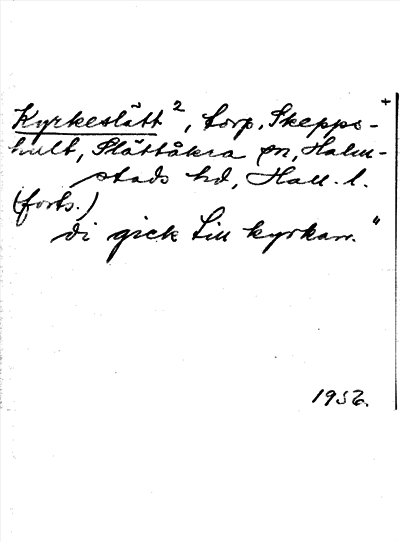 Kyrkeslätt², torp, Skepps-+
hult, Slättåkra sn, Halm-
stads hd, Hall. l.
(forts.)
di gick till kyrkan."
1952.